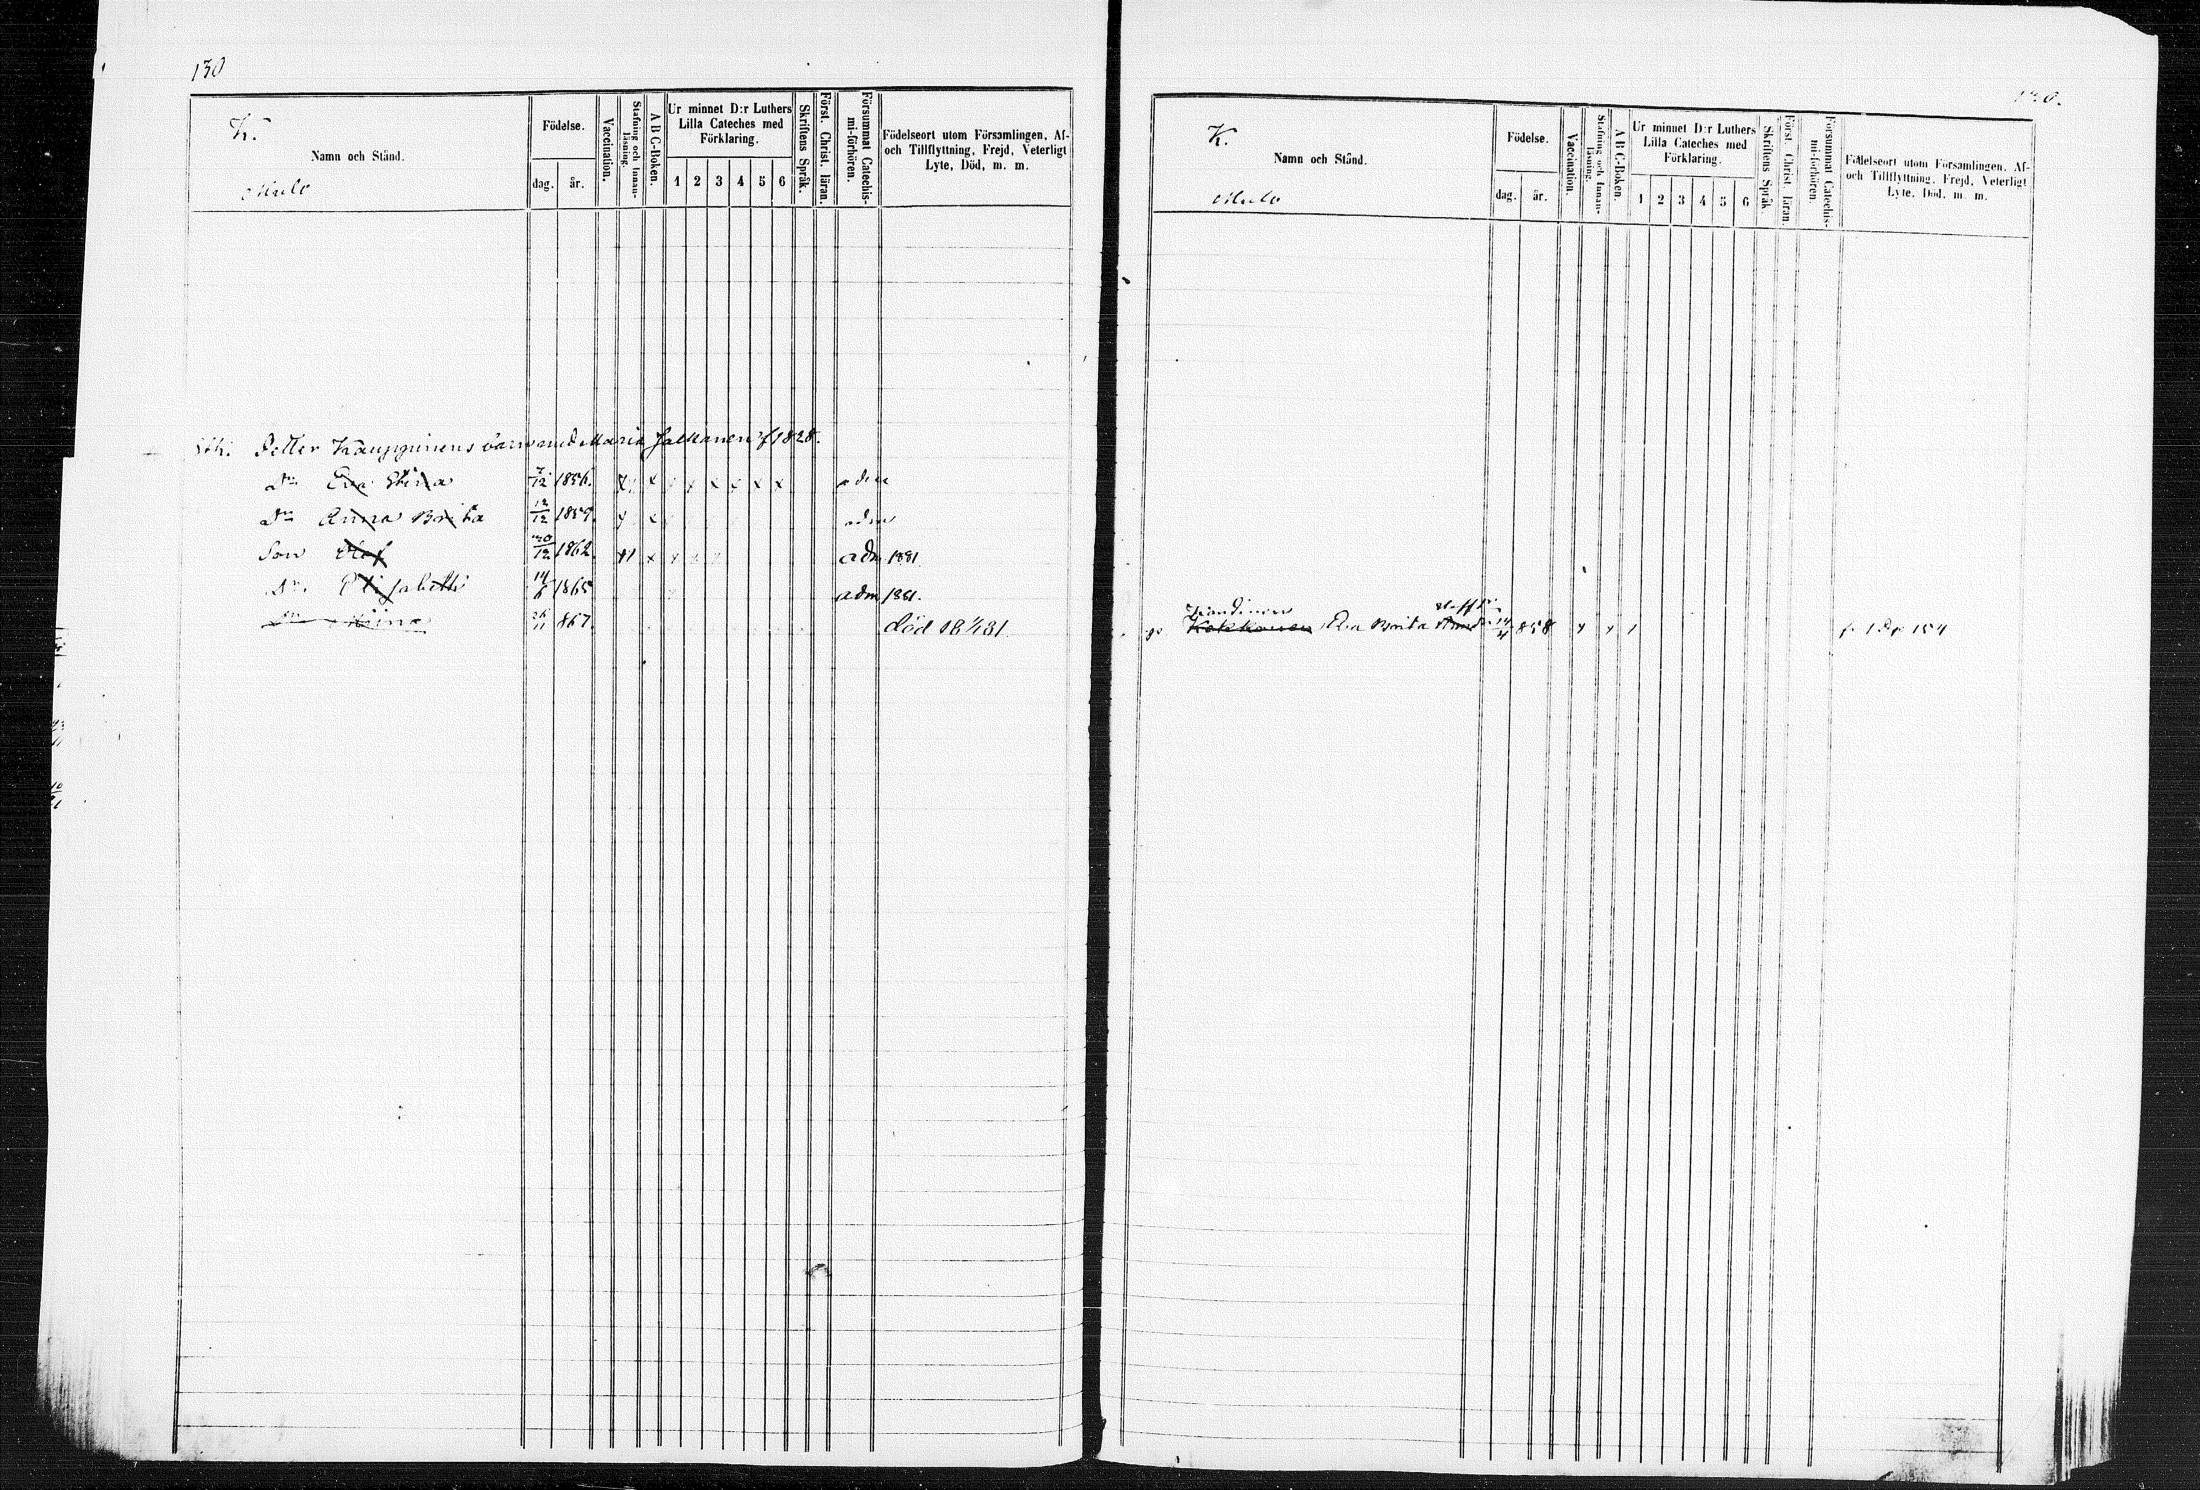 130
K.
Namn och Stånd.
Mulo
Födelse.
dag. år.
Vaccination.
Stafning och Innanläsning.
A B C-Boken.
Ur minnet D:r Luthers
Lilla Cateches med
Förklaring.
1 2 3 4 5 6
Skriftens Språk.
Först. Christ. läran.
Försummat Catechis-
mi-förhören.
Födelseort utom Församlingen, Af-
och Tillflyttning, Frejd, Veterligt
Lyte, Död, m. m.
Petter Kauppinens barn med Maria Jalkanen f 1828.
dr Eva Stina 7/12 1856. x x x x x x x adm
dr Anna Brita 12/12 1859. x x adm
Son Olof 30/12 1862. x x x adm 1881.
Dr. Elisabeth 14/6 1865 adm 1881.
dr Miina 26/11 867. död 18 /81
130.
K.
Namn och Stånd.
Mulo
Födelse.
dag. år.
Vaccination.
Stafning och Innanläsning.
A B C-Boken.
Ur minnet D:r Luthers
Lilla Cateches med
Förklaring.
1 2 3 4 5 6
Skriftens Språk.
Först. Christ. läran
Försummat Catechis-
mi-förhören.
Födelseort utom Församlingen, Af-
och Tillflyttning, Frejd, Veterligt
Lyte, Död, m. m.
Staff dr
Kokkonen Eva Brita 858 x x 154